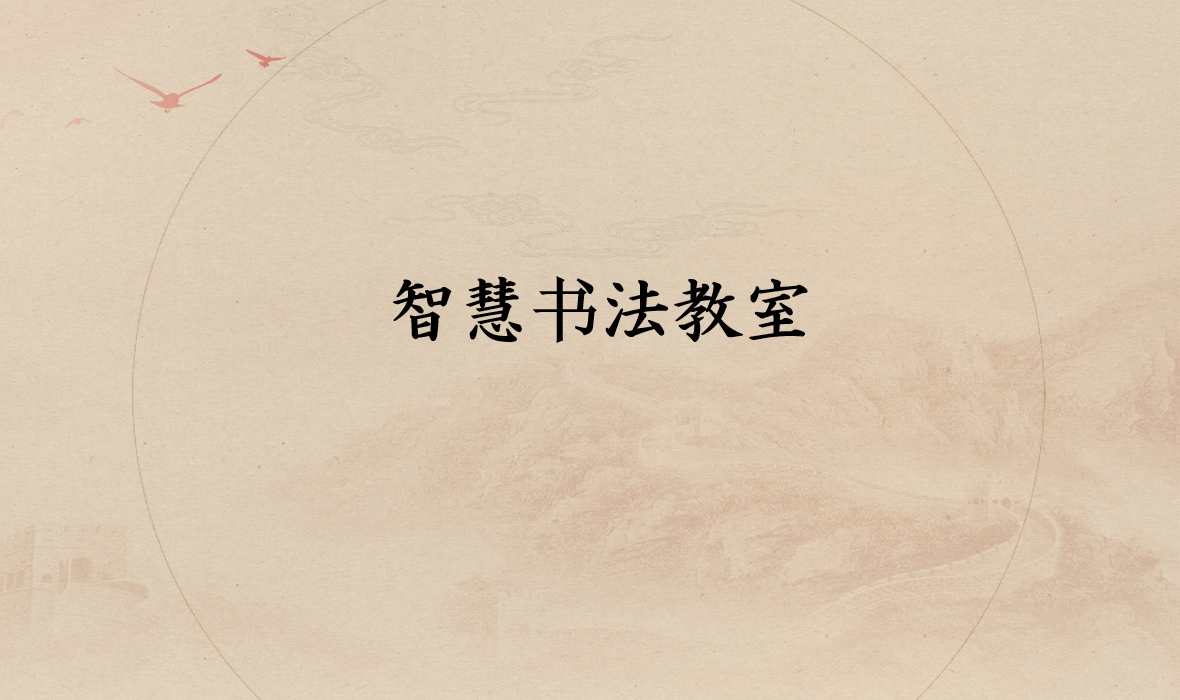 智慧书法教室